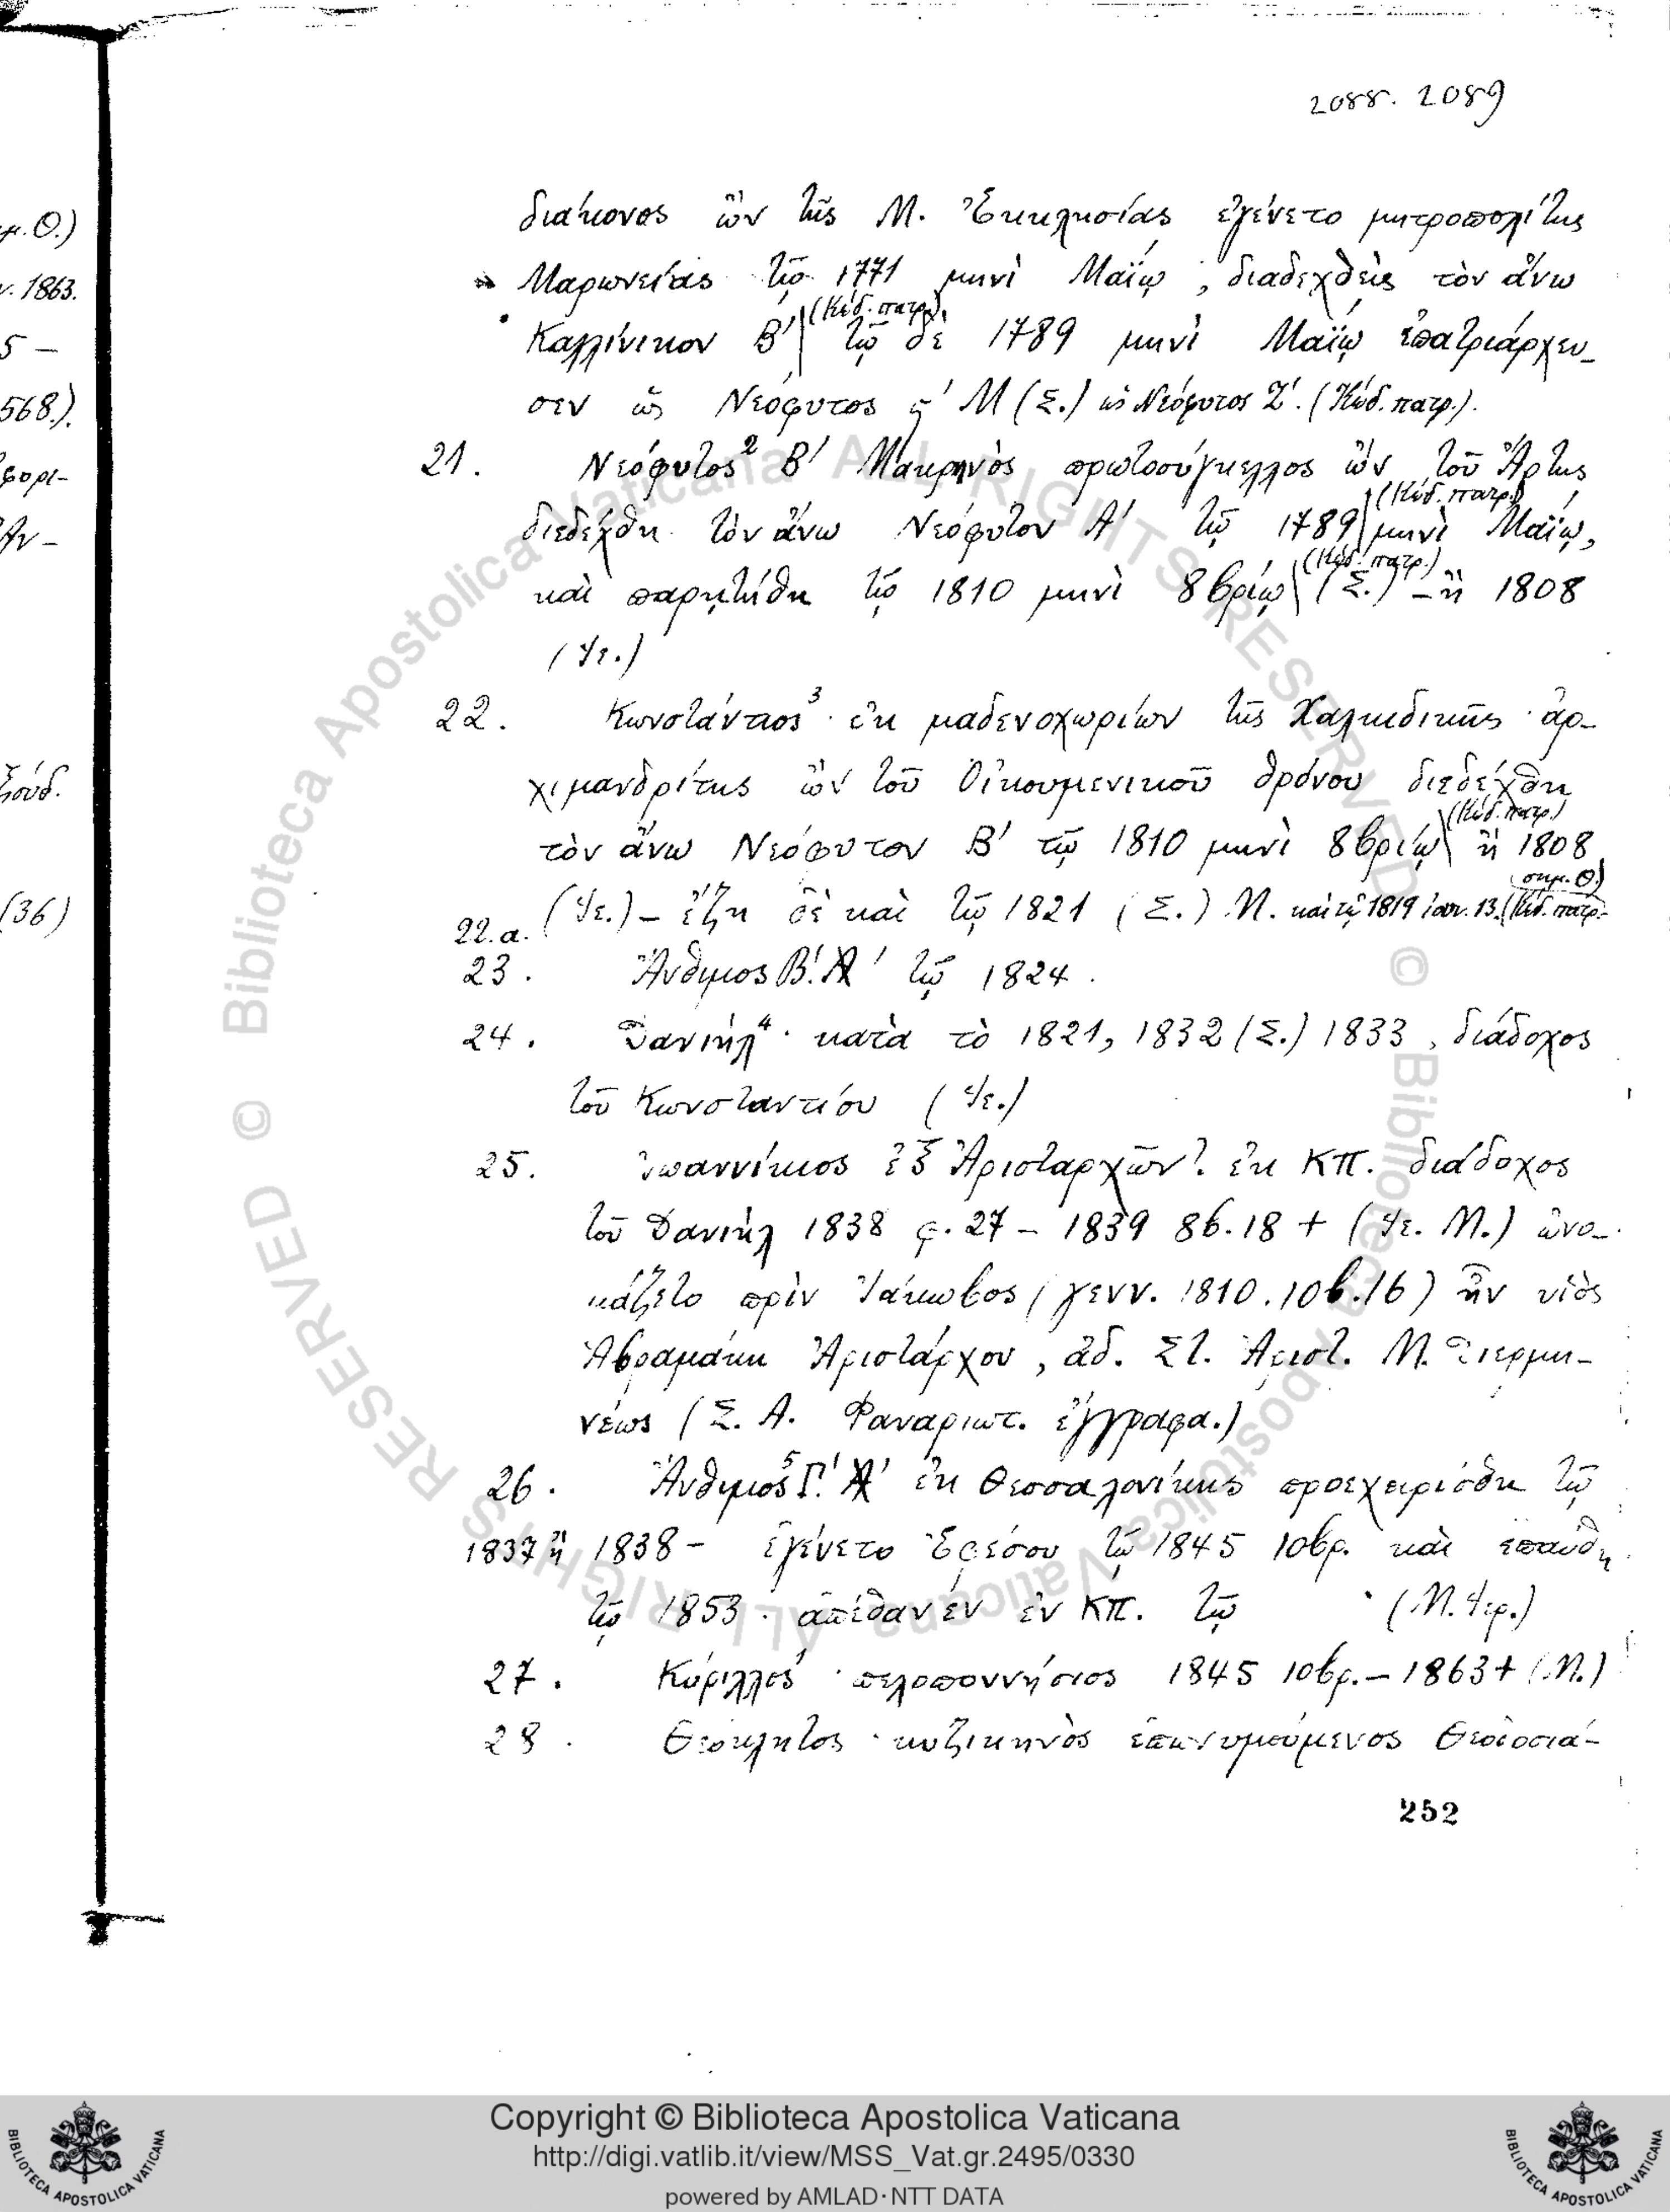 2088. 2089
διάκονος ὢν τῆς Μ. Ἐκκλησίας ἐγένετο μητροπολίτης
Μαρωνείας τῷ 1771 μηνὶ Μαΐῳ, διαδεχθεὶς τὸν ἄνω
(Κώδ. πατρ.)
Καλλίνικον Β′ τῷ δὲ 1789 μηνὶ Μαΐῳ ἐπατριάρχευ-
σεν ὡς Νεόφυτος Μ (Σ.) ὡς Νεόφυτος Ζ′. (Κώδ. πατρ.).
21. Νεόφυτος² Β′ Μακρηνὸς πρωτοσύγκελλος ὢν τοῦ Ἄρτης
(Κώδ. πατρ.)
διεδέχθη τὸν ἄνω Νεόφυτον Α′ τῷ 1789 μηνὶ Μαΐῳ,
(Κώδ. πατρ.)
καὶ παρῃτήθη τῷ 1810 μηνὶ 8βρίῳ (Σ.) – ἢ 1808
(Ψε.)
22. Κωνστάντιος³ · ἐκ μαδενοχωρίων τῆς Χαλκιδικῆς · ἀρ-
χιμανδρίτης ὢν τοῦ Οἰκουμενικοῦ θρόνου διεδέχθη
(Κώδ. πατρ.)
τὸν ἄνω Νεόφυτον Β′ τῷ 1810 μηνὶ 8βρίῳ ἢ 1808
σημ. Θ.)
(Ψε.) – ἔζη δὲ καὶ τῷ 1821 (Σ.) Μ. καὶ τῷ 1819 ἰαν. 13. (Κώδ. πατρ.
22.α.
23. Ἄνθιμος Β′. Α′ τῷ 1824.
24. Δανιὴλ⁴ · κατὰ τὸ 1821, 1832 (Σ.) 1833, διάδοχος
τοῦ Κωνσταντίου (Ψε.)
25. Ἰωαννίκιος ἐξ Ἀρισταρχῶν ἐκ ΚΠ. διάδοχος
τοῦ Δανιὴλ 1838 φ. 27 – 1839 8β. 18 + (Ψε. Μ.) ὠνο-
μάζετο πρὶν Ἰάκωβος (γενν. 1810. 10β. 16) ἦν υἱὸς
Ἀβραμάκη Ἀριστάρχου, ἀδ. Στ. Ἀριστ. Μ. Διερμη-
νέως (Σ. Α. Φαναριωτ. ἔγγραφα.)
26. Ἄνθιμος⁵ Γ′. Α′ ἐκ Θεσσαλονίκης προεχειρίσθη τῷ
1837 ἢ 1838 – ἐγένετο Ἐφέσου τῷ 1845 10βρ. καὶ ἐπαύθη
τῷ 1853 · ἀπέθανεν ἐν ΚΠ. τῷ (Μ. Ψερ.)
27. Κύριλλος · πελοποννήσιος 1845 10βρ. – 1863 + (Μ.)
28. Θεόκλητος · κυζικηνὸς ἐπονυμούμενος Θεοδοσιά-
252
μ. Θ.)
ν. 1863.
5 –
568.).
φορι-
Ἀν-
(36)
© Biblioteca Apostolica Vaticana ALL RIGHTS RESERVED © Biblioteca Apostolica Vaticana ALL RIGHTS RESERVED
Copyright © Biblioteca Apostolica Vaticana
http://digi.vatlib.it/view/MSS_Vat.gr.2495/0330
powered by AMLAD·NTT DATA
BIBLIOTECA APOSTOLICA VATICANA
BIBLIOTECA APOSTOLICA VATICANA